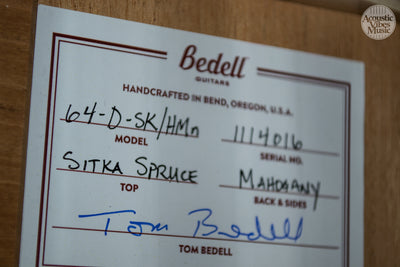 Acoustic
Vibes
Music
Bedell
GUITARS
HANDCRAFTED IN BEND, OREGON, U.S.A.
64-D-SK/HMn 1114016
MODEL SERIAL NO.
SITKA SPRUCE MAHOGANY
TOP BACK & SIDES
Tom Bedell
TOM BEDELL